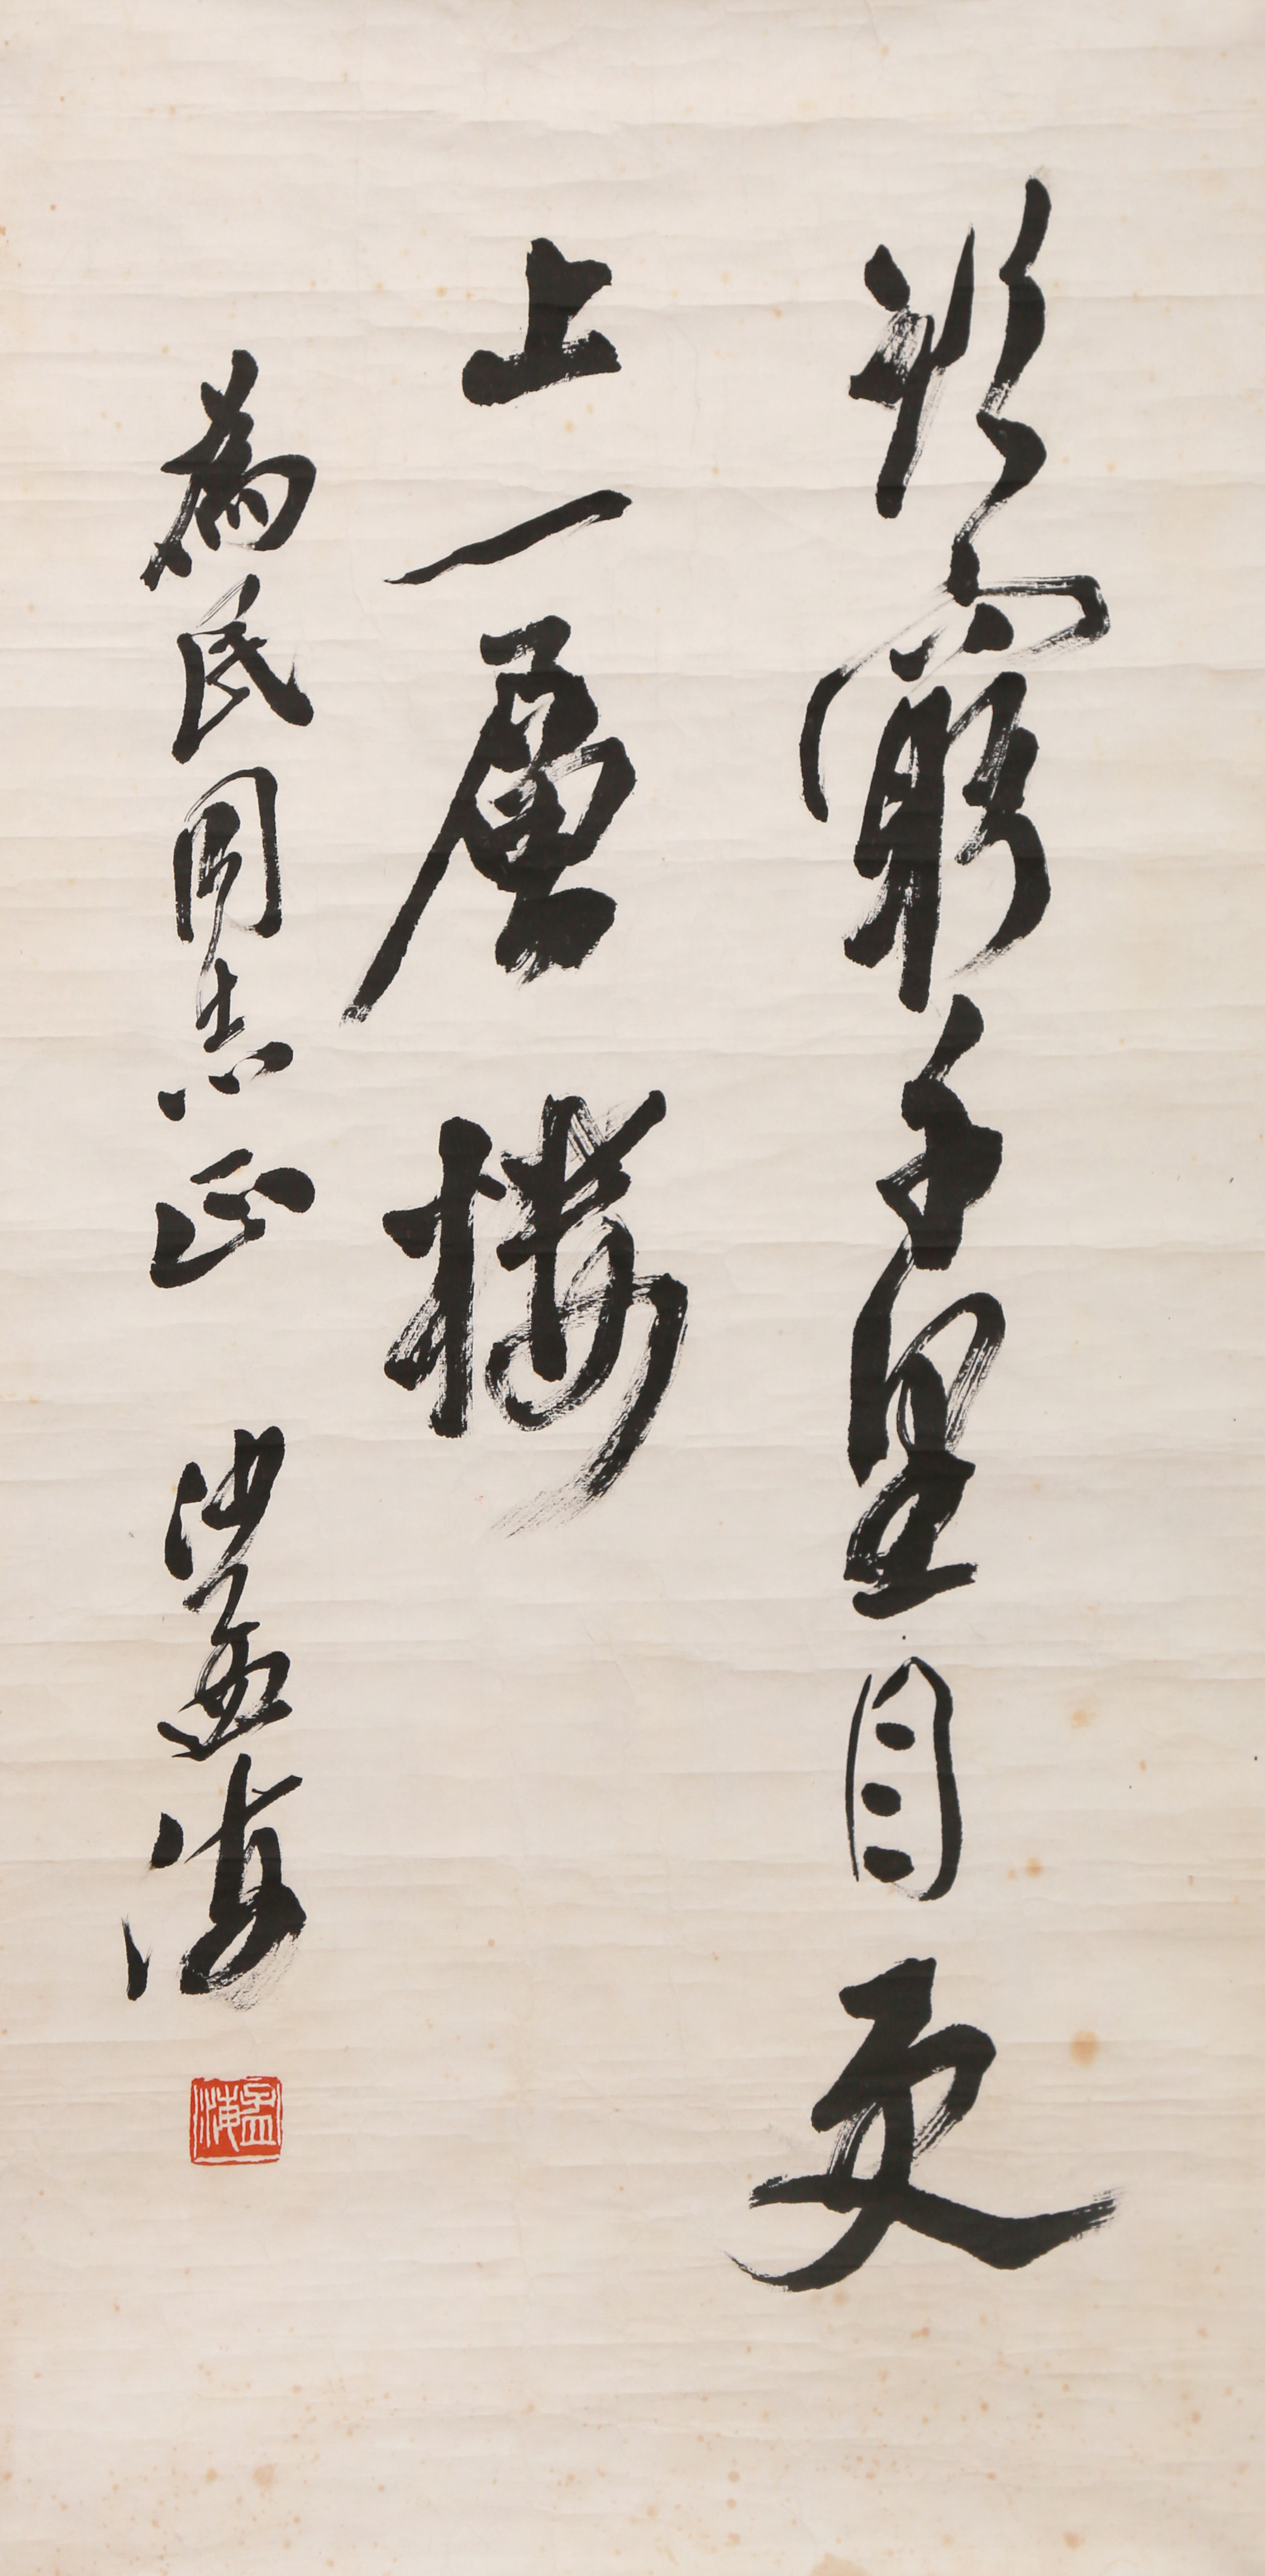 欲窮千里目更
上一層樓
為民同志正 沙孟海
孟海